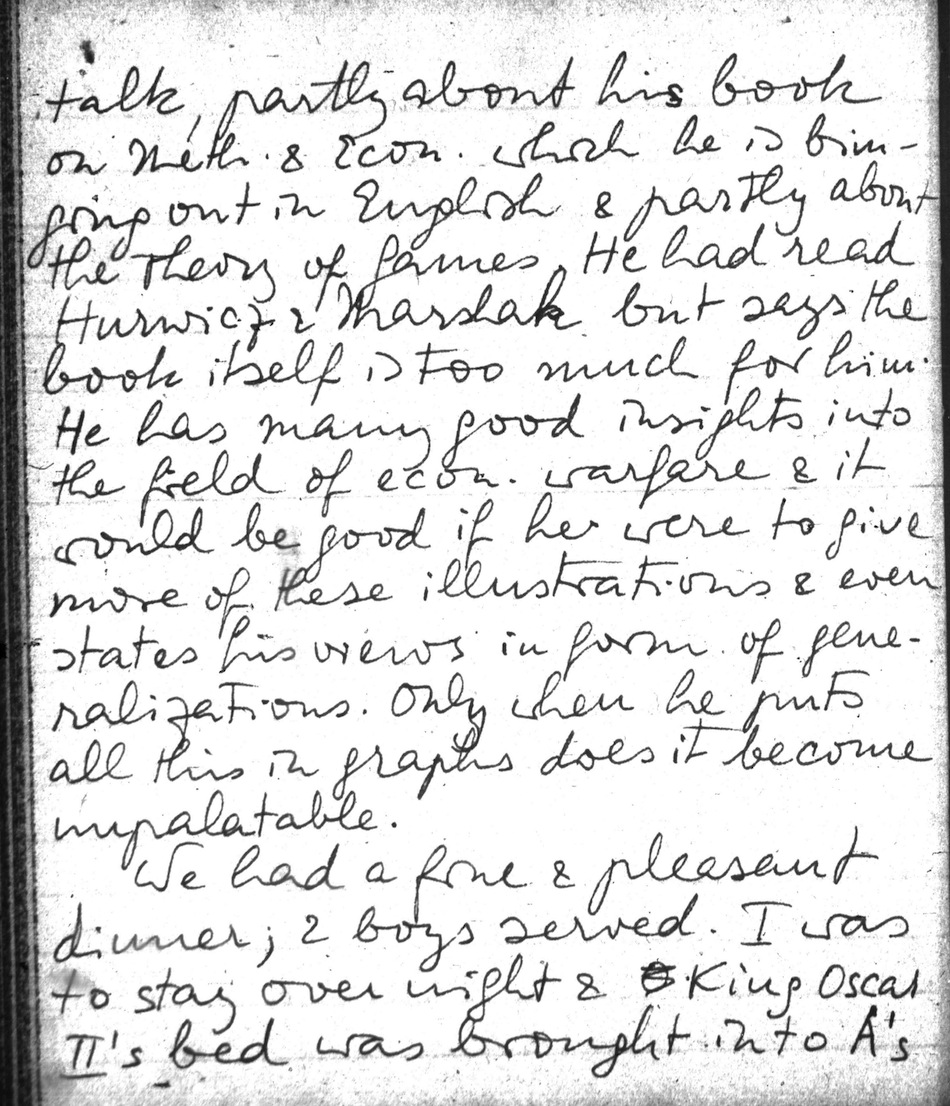 talk, partly about his book
on Meth. & Econ. which he is brin-
ging out in English & partly about
the Theory of Games. He had read
Hurwicz & Marshak but says the
book itself is too much for him.
He has many good insights into
the field of econ. warfare & it
would be good if he were to give
more of these illustrations & even
states his views in form of gene-
ralizations. Only when he puts
all this in graphs does it become
unpalatable.
We had a fine & pleasant
dinner; 2 boys served. I was
to stay over night & King Oscar
II's bed was brought into Å's